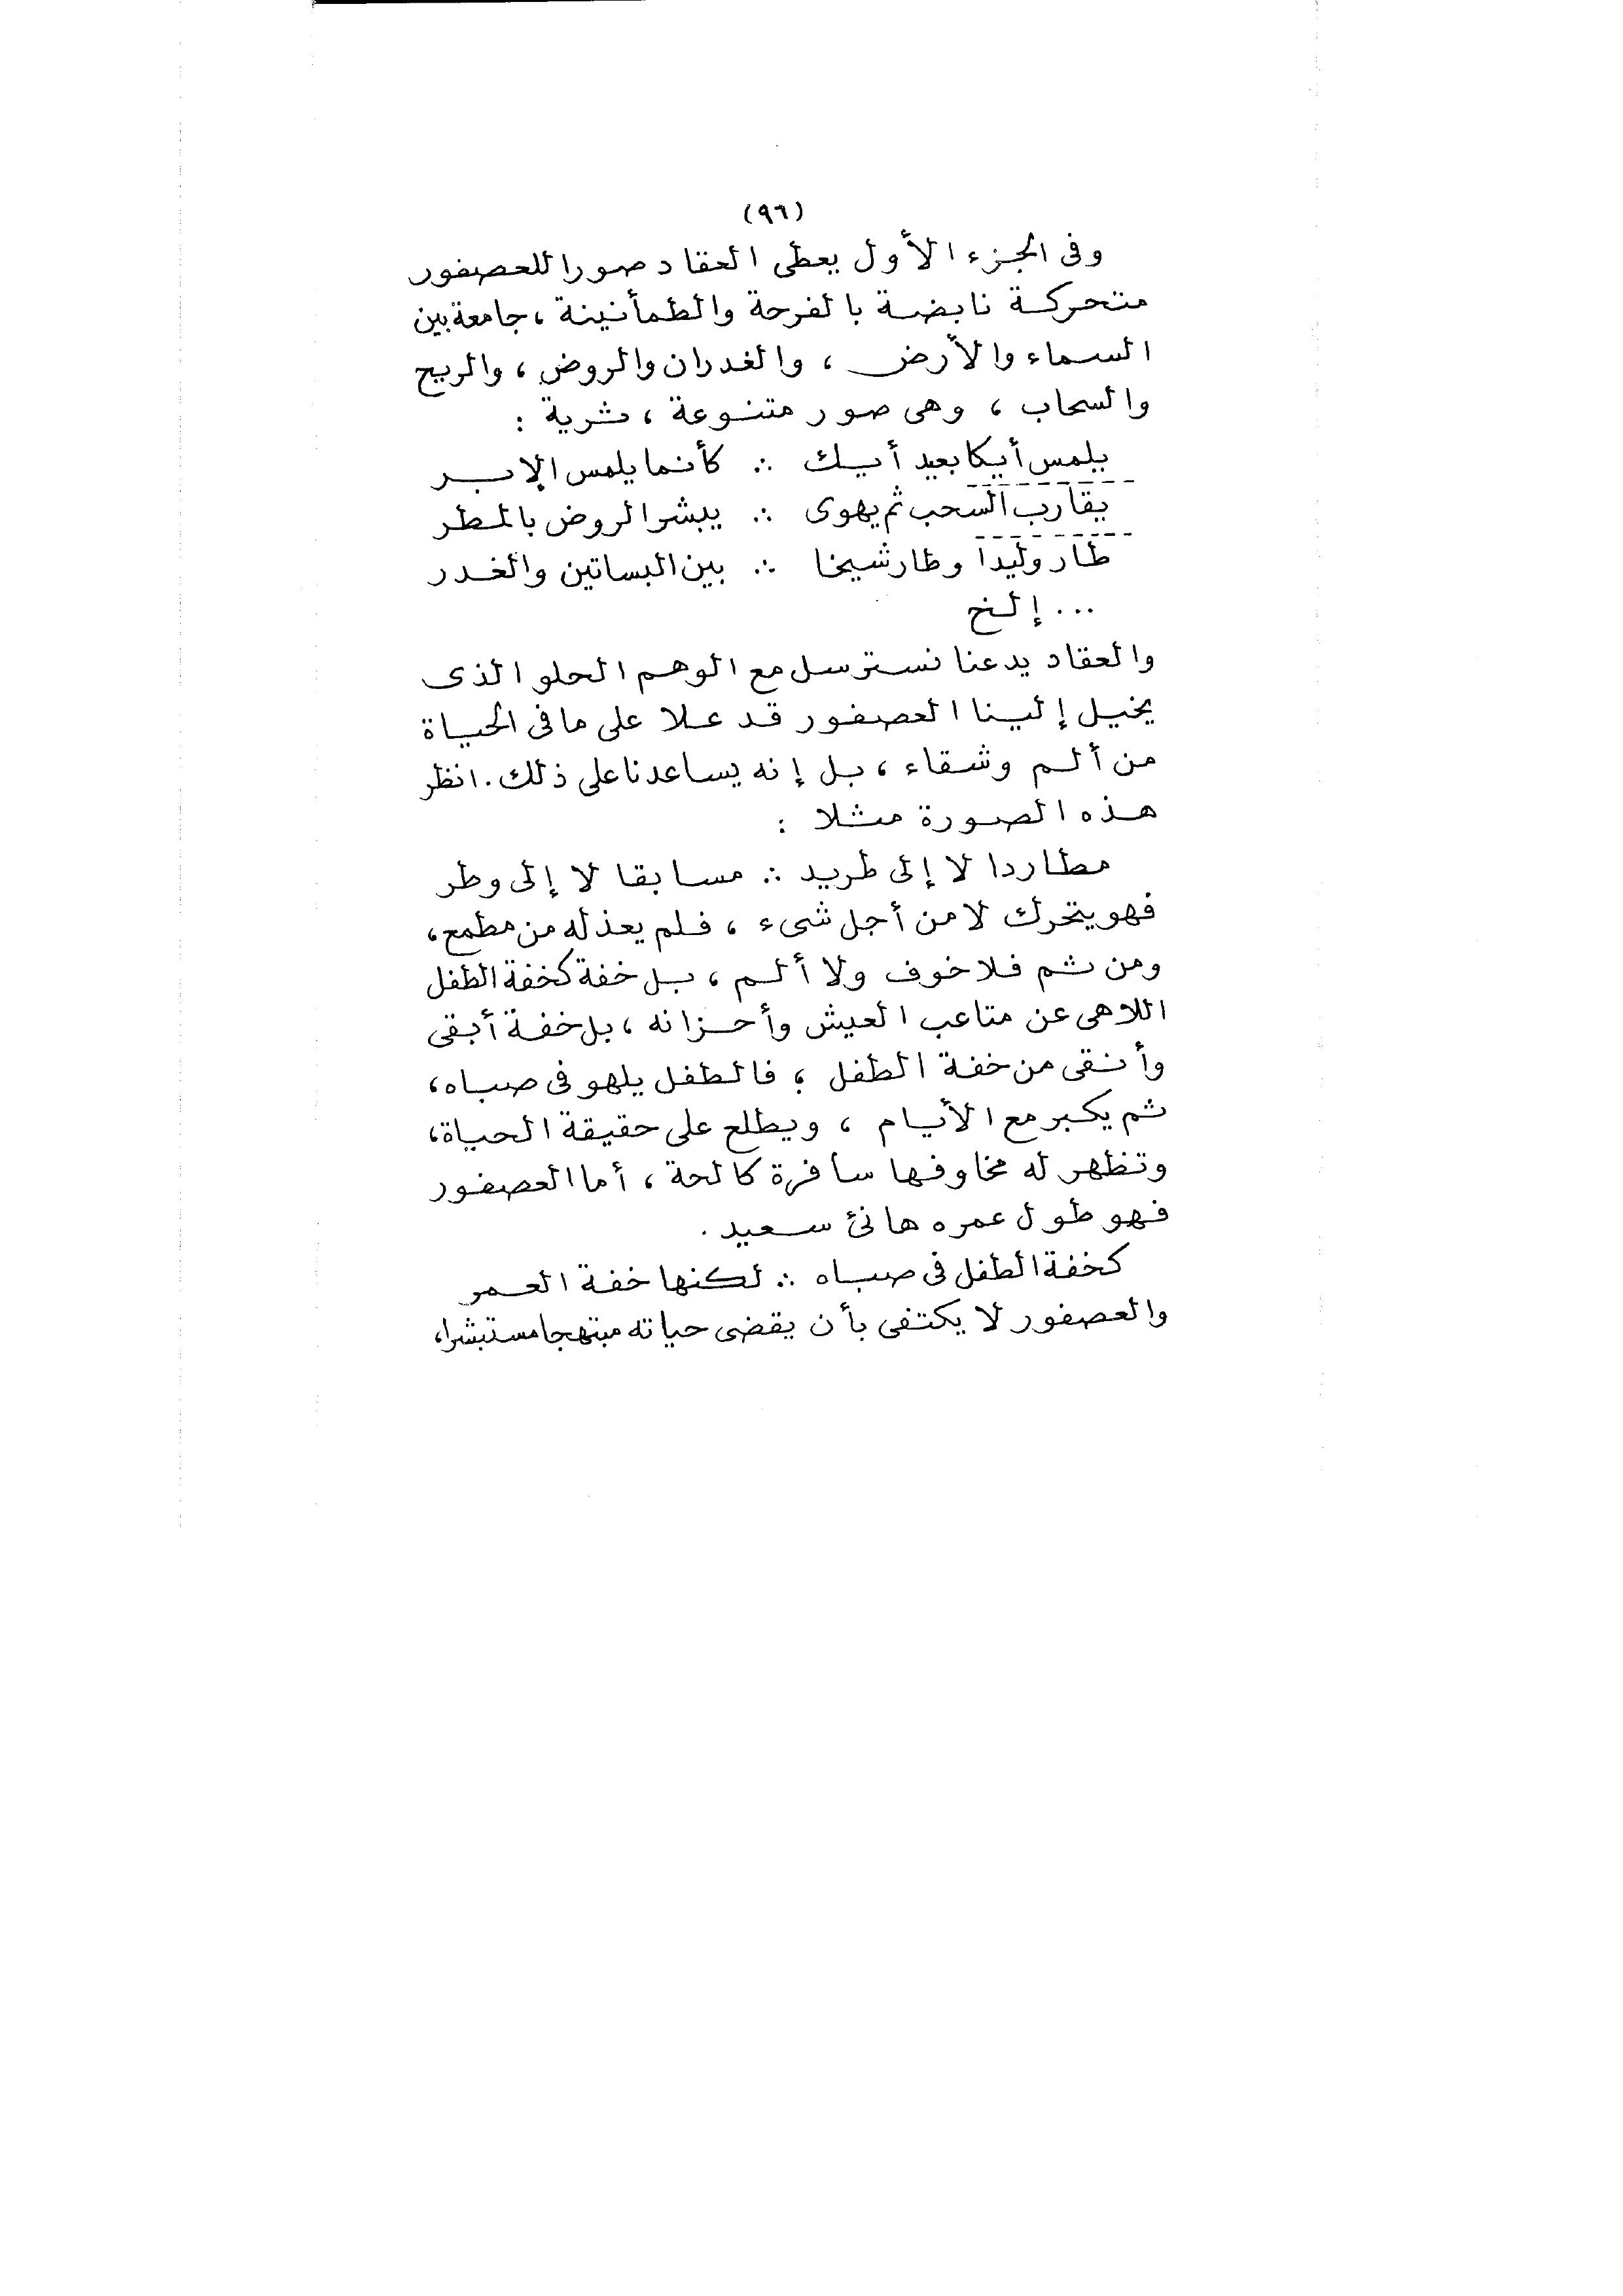 (٩٦)
وفى الجزء الأول يعطى العقاد صورا للعصفور
متحركة نابضة بالفرحة والطمأنينة ، جامعة بين
السماء والأرض ، والغدران والروض ، والريح
والسحاب ، وهى صور متنوعة ، ثرية :
يلمس أيكا بعيد أيك ∴ كأنما يلمس الإبر
يقارب السحب ثم يهوى ∴ يبشر الروض بالمطر
طار وليدا وطار شيخا ∴ بين البساتين والغدر
... إلخ
والعقاد يدعنا نسترسل مع الوهم الحلو الذى
يخيل إلينا العصفور قد علا على ما فى الحياة
من ألم وشقاء ، بل إنه يساعدنا على ذلك . انظر
هذه الصورة مثلا :
مطاردا لا إلى طريد ∴ مسابقا لا إلى وطر
فهو يتحرك لا من أجل شىء ، فلم يعد له من مطمع ،
ومن ثم فلا خوف ولا ألم ، بل خفة كخفة الطفل
اللاهى عن متاعب العيش وأحزانه ، بل خفة أبقى
وأنقى من خفة الطفل ؛ فالطفل يلهو فى صباه ،
ثم يكبر مع الأيام ، ويطلع على حقيقة الحياة ،
وتظهر له مخاوفها سافرة كالحة ، أما العصفور
فهو طول عمره هانئ سعيد .
كخفة الطفل فى صباه ∴ لكنها خفة العمر
والعصفور لا يكتفى بأن يقضى حياته مبتهجا مستبشرا ،